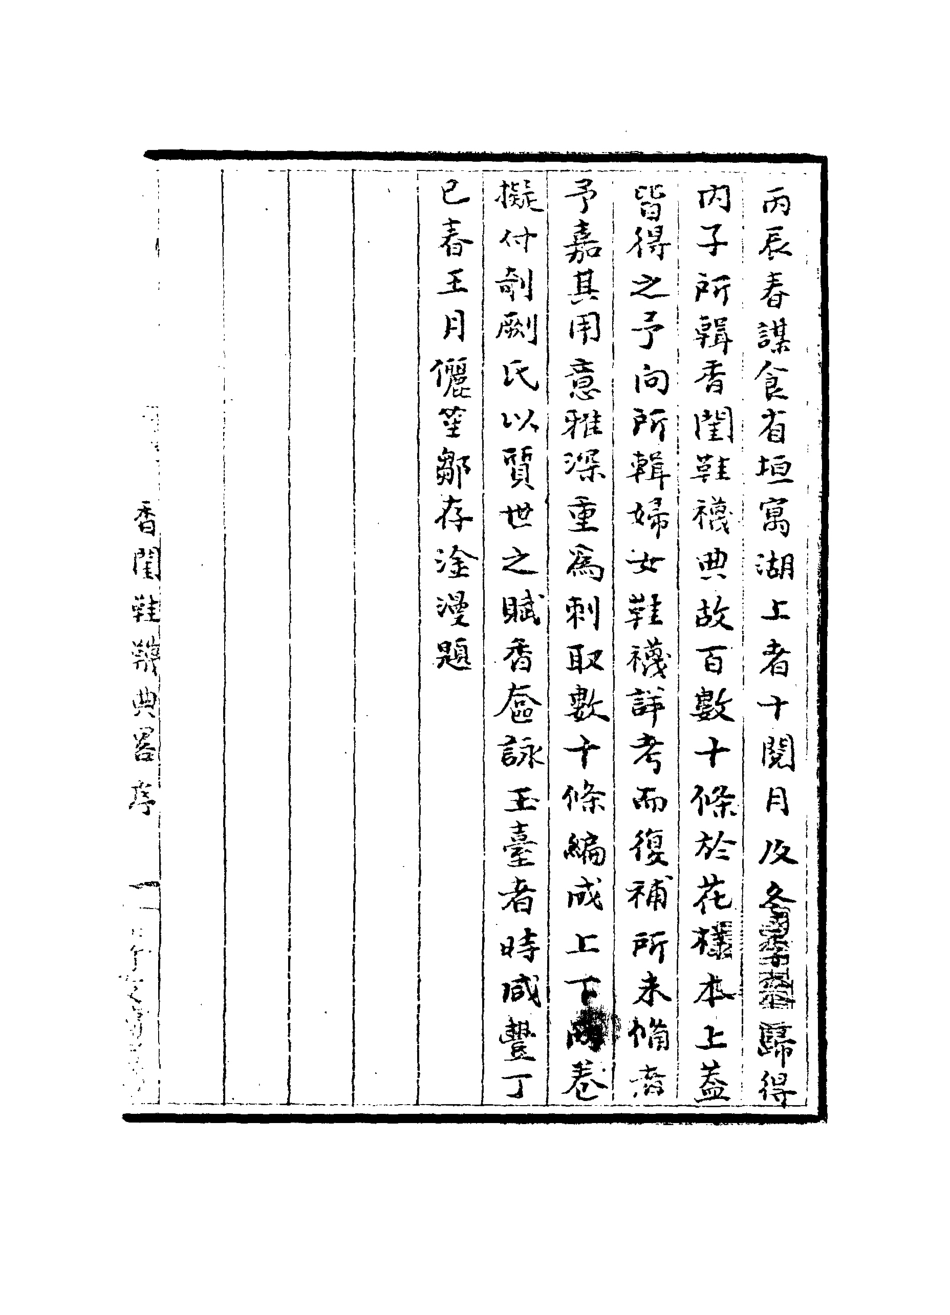 丙辰春謀食省垣寓湖上者十閱月及冬歸得
内子所輯香閨鞋襪典故百數十條於花樣本上蓋
皆得之予向所輯婦女鞋襪詳考而復補所未備者
予嘉其用意雅深重為刺取數十條編成上下兩卷
擬付剞劂氏以質世之賦香奩詠玉臺者時咸豐丁
巳春王月儷笙鄒存淦漫題
香閨鞋襪典畧序 一